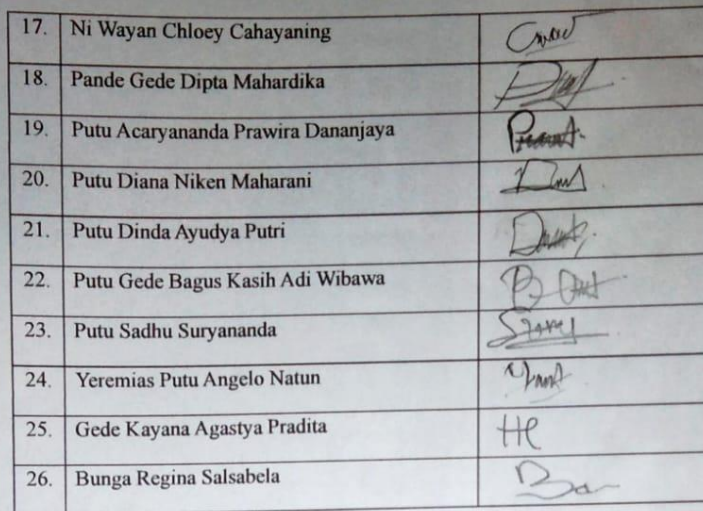 17. Ni Wayan Chloey Cahayaning
18. Pande Gede Dipta Mahardika
19. Putu Acaryananda Prawira Dananjaya
20. Putu Diana Niken Maharani
21. Putu Dinda Ayudya Putri
22. Putu Gede Bagus Kasih Adi Wibawa
23. Putu Sadhu Suryananda
24. Yeremias Putu Angelo Natun
25. Gede Kayana Agastya Pradita
26. Bunga Regina Salsabela